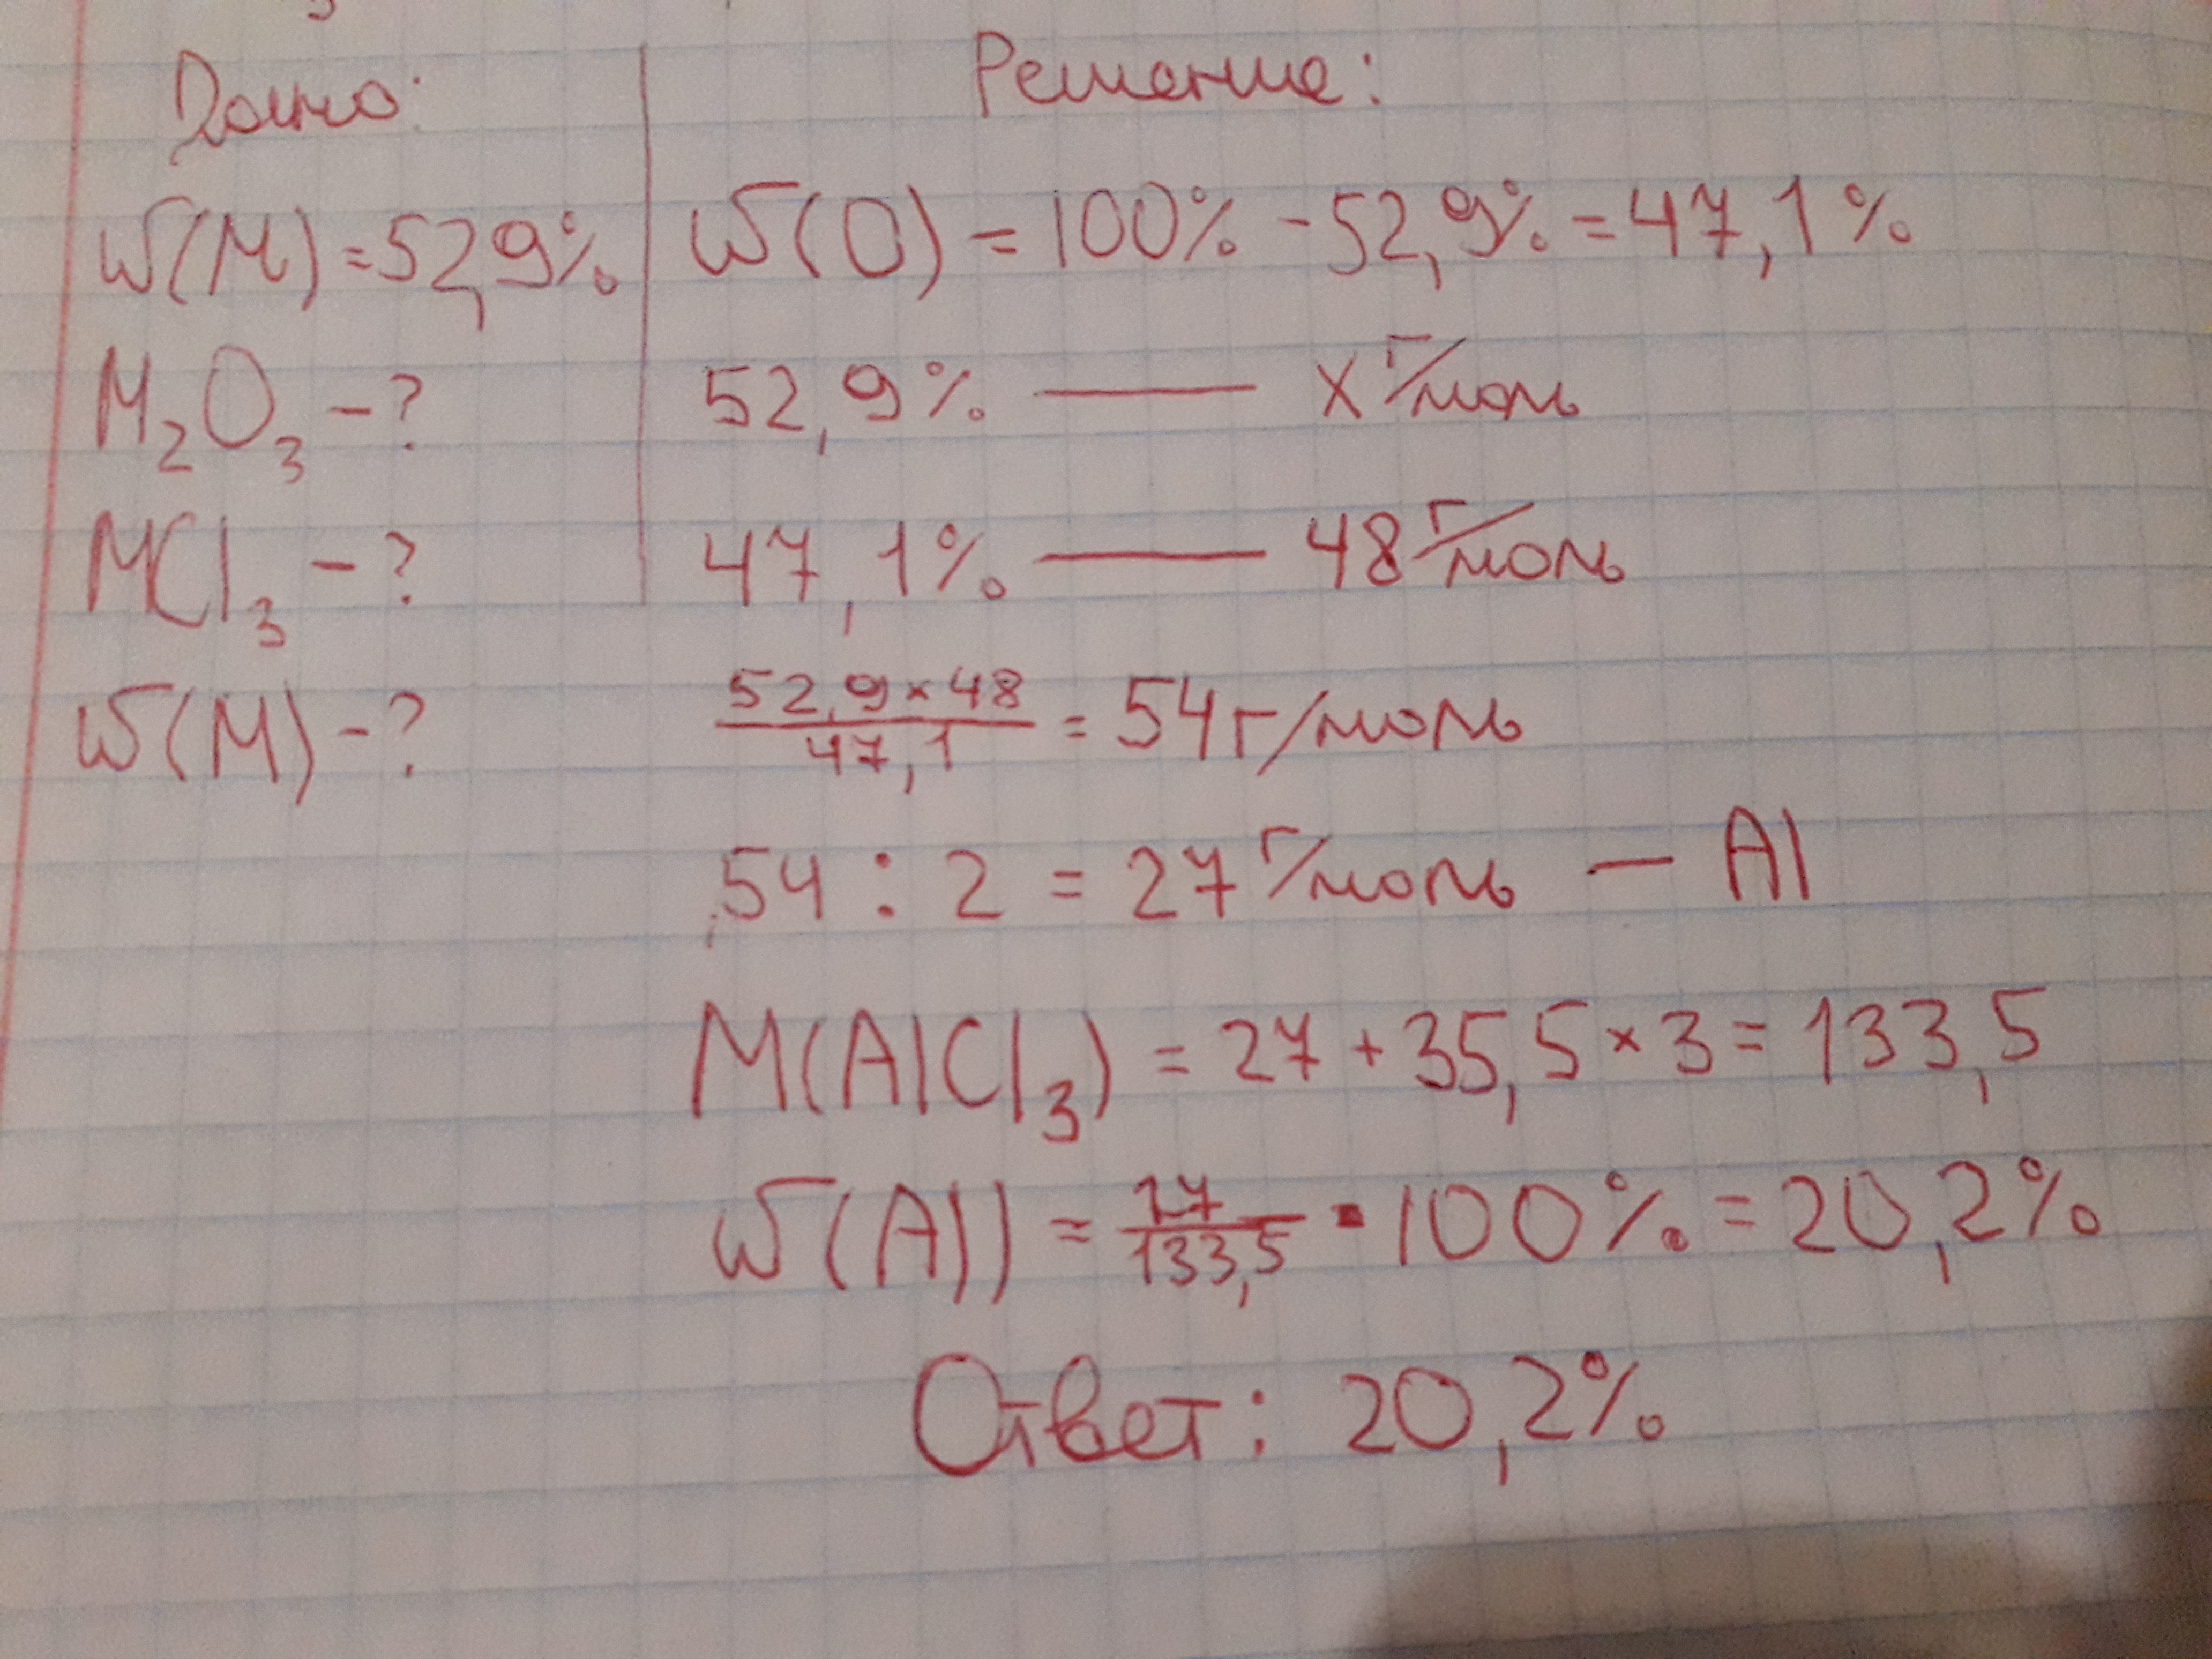 Дано:
ω(M) = 52,9%
M₂O₃ - ?
MCl₃ - ?
ω(M) - ?
Решение:
ω(O) = 100% - 52,9% = 47,1%
52,9% — x г/моль
47,1% — 48 г/моль
52,9 × 48 / 47,1 = 54 г/моль
54 : 2 = 27 г/моль — Al
M(AlCl₃) = 27 + 35,5 × 3 = 133,5
ω(Al) = 27 / 133,5 · 100% = 20,2%
Ответ: 20,2%